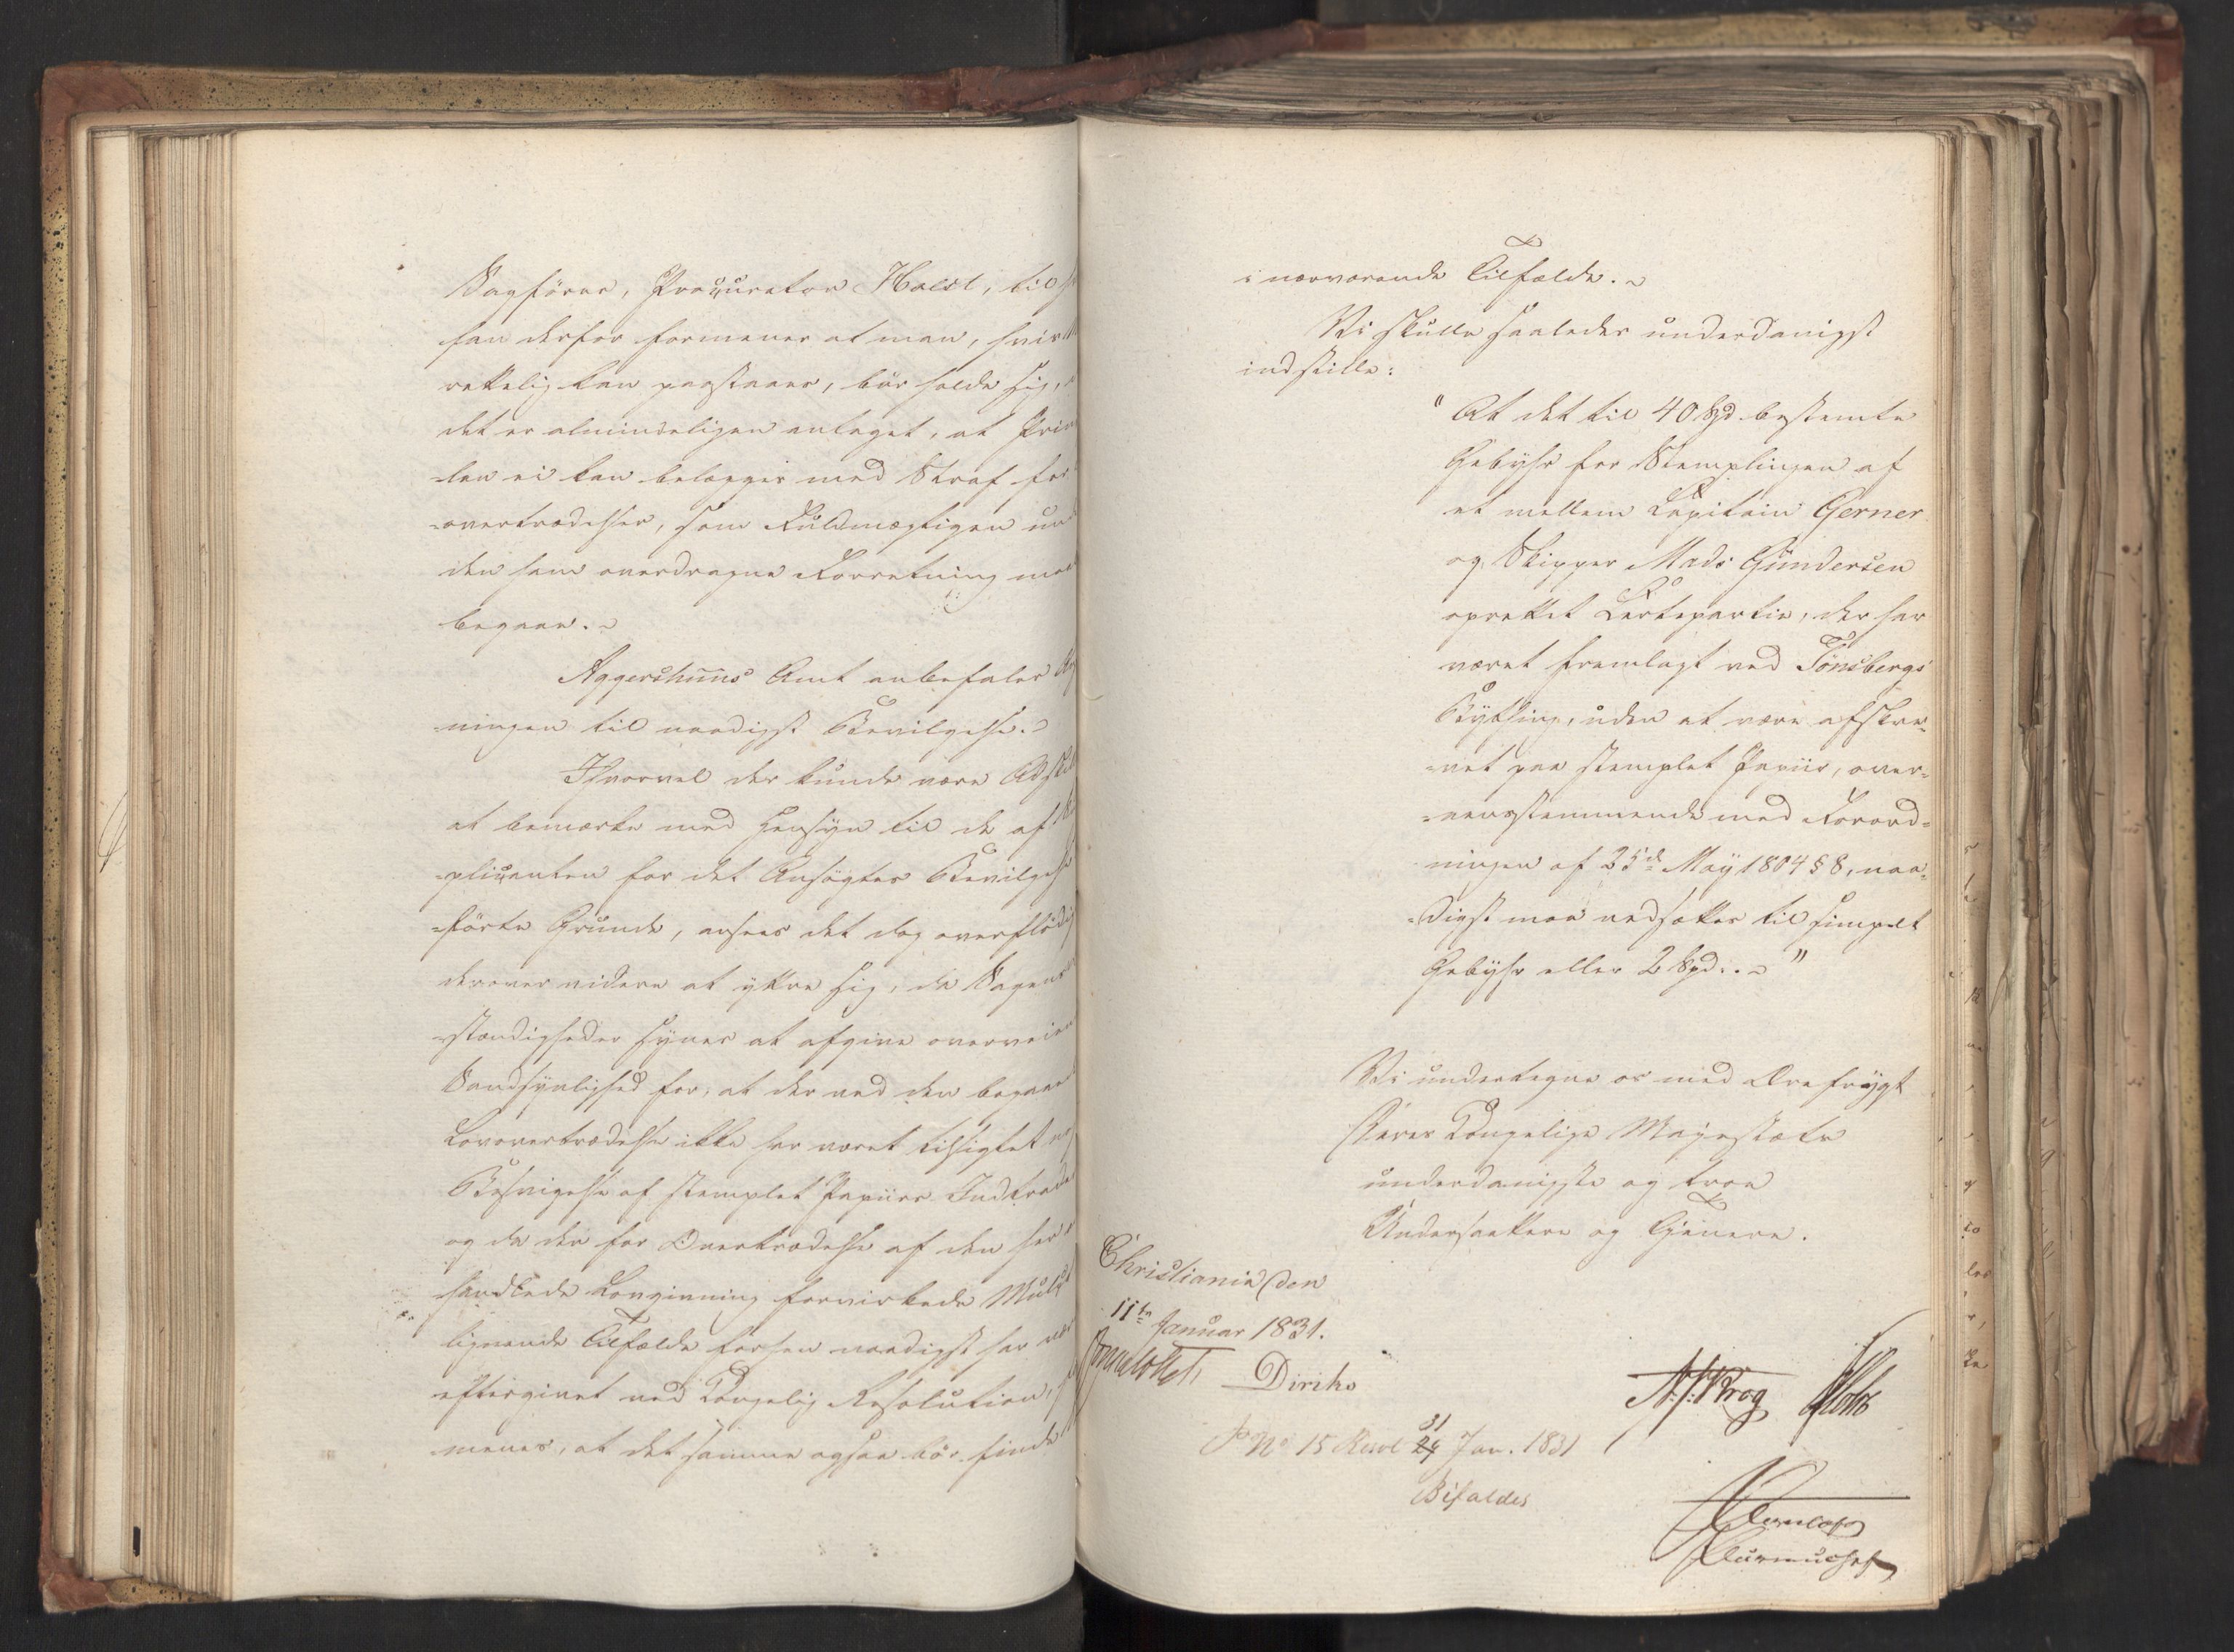 Sagfører, Procurator Holst, til
han derfor formener at man, hvis
rettelig kan paastaaes, bør holde sig,
det er almindeligen antaget, at Prin
-len ei kan belægges med Straf for
-overtrædelser, som Fuldmægtigen un
den ham overdragne Forretning maa
begaae.
Aggershuus Amt anbefaler
-ningen til naadigst Bevilgelse.
Hvorvel der kunde være Adskil
at bemærke med Hensyn til de af
-plicanten for det Ansøgtes Bevilgelse
-førte Grunde, ansees det dog overflødig
derover videre at yttre sig, da Sagens
-stændigheder synes at afgive overveie
Sandsynlighed for, at der ved den begaae
Lovovertrædelse ikke har været tilsigtet
Besvigelse af stemplet Papiirs Indtræde
og da den for Overtrædelse af den her
handlede Lovgivning forvirkede Mulkt
lignende Tilfælde forhen naadigst har vær
eftergivet ved Kongelig Resolution,
menes, at det samme ogsaa bør finde
i nærværende Tilfælde.
Vi skulle saaledes underdanigst
indstille:
"At det til 40 Spd bestemte
Gebyhr for Stemplingen af
et mellem Capitain Gerner
og Skipper Mads Gundersen
oprettet Certepartie, der har
været fremlagt ved Tönsbergs
Bything, uden at være afskre-
-vet paa stemplet Papiir, over-
-eensstemmende med Forord-
-ningen af 25d May 1804 § 8, naa-
-digst maa nedsættes til simpelt
Gebyhr eller 2 Spd."
Vi undertegne os med Ærefrygt
Deres Kongelige Majestæts
underdanigste og troe
Undersaattere og Tjenere.
Christiania den
11te Januar 1831.
Diriks
N. J. Krog
No 15 Resol 31 24 Jan. 1831
Bifaldes